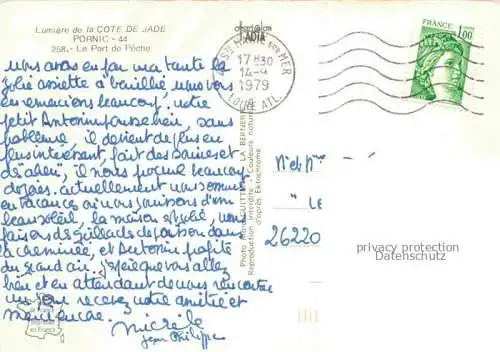 Lumière de la COTE DE JADE
PORNIC - 44
258.- Le Port de Pêche
nous avons en par ma tante la
jolie assiette à nous vous
en remercions beaucoup, notre
petit Antonin pousse bien, sans
problème, il devient de plus en
plus intéressant, fait des sourires et
il nous procure beaucoup
de joies. actuellement nous sommes
en vacances où nous jouissons d'un
beau soleil, la maison est jolie, nous
faisons des grillades de poisson dans
la cheminée, et Antonin profite
du grand air. J'espère que vous allez
bien et en attendant de vous rencontrer
un jour recevez notre amitié et
merci encore.
Michèle
Jean Philippe
STE MARIE SUR MER
17 H 30
14-9
1979
LOIRE ATL.
FRANCE
1,00
Reproduction interdite Couleurs naturelles
d'après Ektachrome
LE
26220
privacy protection
Datenschutz